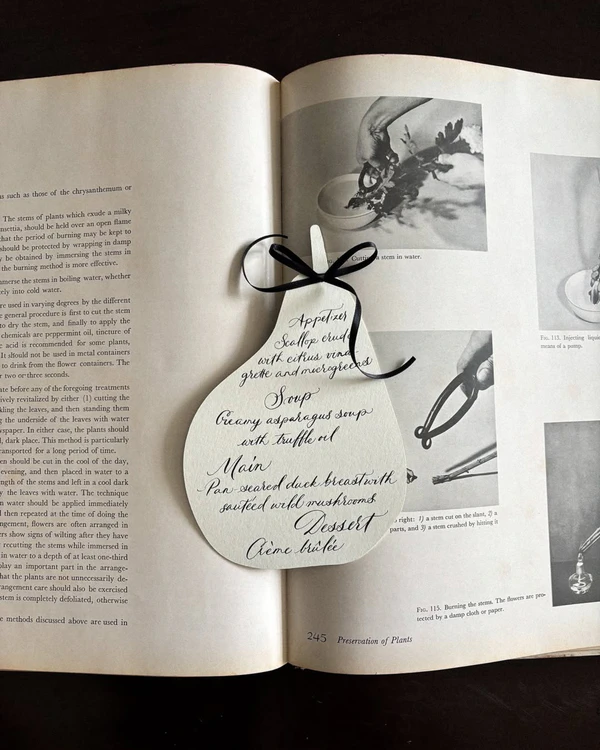 s such as those of the chrysanthemum or
The stems of plants which exude a milky
nsettia, should be held over an open flame
that the period of burning may be kept to
should be protected by wrapping in damp
y be obtained by immersing the stems in
the burning method is more effective.
mmerse the stems in boiling water, whether
tely into cold water.
re used in varying degrees by the different
e general procedure is first to cut the stem
to dry the stem, and finally to apply the
chemicals are peppermint oil, tincture of
e acid is recommended for some plants,
It should not be used in metal containers
to drink from the flower containers. The
r two or three seconds.
ate before any of the foregoing treatments
ctively revitalized by either (1) cutting the
kling the leaves, and then standing them
g the underside of the leaves with water
wspaper. In either case, the plants should
d, dark place. This method is particularly
ransported for a long period of time.
en should be cut in the cool of the day,
evening, and then placed in water to a
ngth of the stems and left in a cool dark
y the leaves with water. The technique
n water should be applied immediately
d then repeated at the time of doing the
ngement, flowers are often arranged in
rs show signs of wilting after they have
recutting the stems while immersed in
in water to a depth of at least one-third
play an important part in the arrange-
that the plants are not unnecessarily de-
rangement care should also be exercised
stem is completely defoliated, otherwise
e methods discussed above are used in
Cutting a stem in water.
Appetizer
Scallop crud
with citrus vinai
grette and microgreens
Soup
Creamy asparagus soup
with truffle oil
Main
Pan seared duck breast with
sautéed wild mushrooms
Dessert
Crème brûlée
right: 1) a stem cut on the slant, 2) a
parts, and 3) a stem crushed by hitting it
FIG. 113. Injecting liquid
means of a pump.
FIG. 115. Burning the stems. The flowers are pro-
tected by a damp cloth or paper.
245 Preservation of Plants